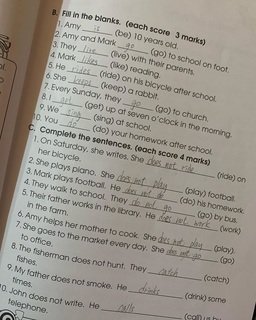 B. Fill in the blanks. (each score 3 marks)
1. Amy is (be) 10 years old.
2. Amy and Mark go (go) to school on foot.
3. They live (live) with their parents.
4. Mark likes (like) reading.
5. He rides (ride) on his bicycle after school.
6. She keeps (keep) a rabbit.
7. Every Sunday, they go (go) to church.
8. I get (get) up at seven o'clock in the morning.
9. We sing (sing) at school.
10. You do (do) your homework after school.
C. Complete the sentences. (each score 4 marks)
1. On Saturday, she writes. She does not ride (ride) on
her bicycle.
2. She plays piano. She does not play (play) football.
3. Mark plays football. He does not do (do) his homework.
4. They walk to school. They do not go (go) by bus.
5. Their father works in the library. He does not work (work)
in the farm.
6. Amy helps her mother to cook. She does not play (play).
7. She goes to the market every day. She does not go (go)
to office.
8. The fisherman does not hunt. They catch (catch)
fishes.
9. My father does not smoke. He drinks (drink) some
times.
10. John does not write. He calls (call) us by
telephone.